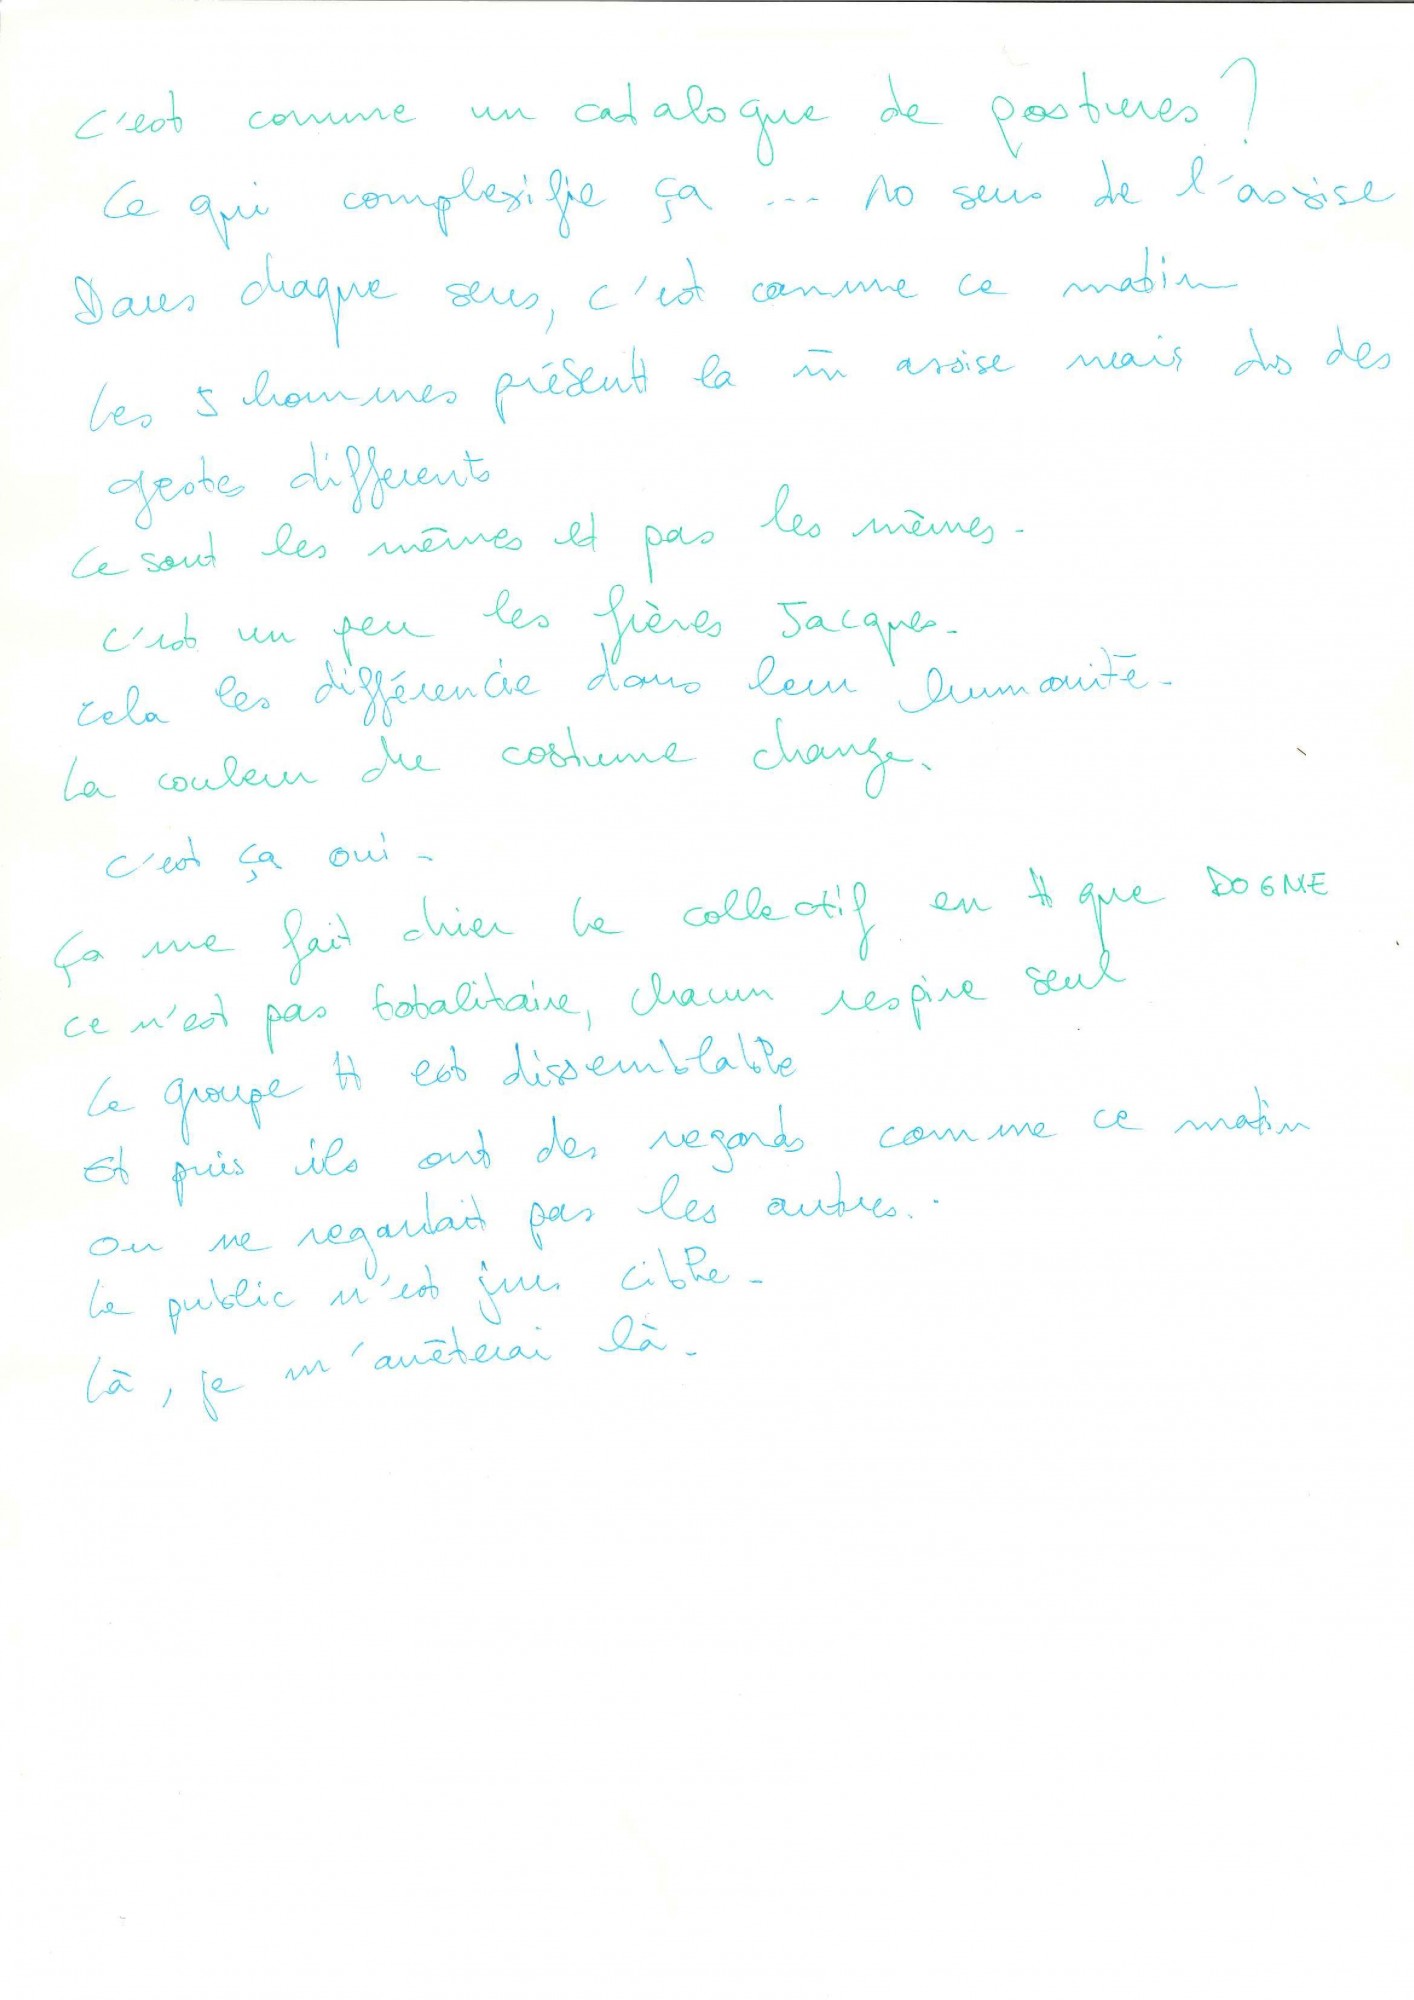 C'est comme un catalogue de postures ?
Ce qui complexifie ça ... 10 sens de l'assise
Dans chaque sens, c'est comme ce matin
Les 5 hommes présent la m̄ assise mais ds des
gestes différents
Ce sont les mêmes et pas les mêmes -
C'est un peu les frères Jacques -
Cela les différencie dans leur humanité -
La couleur du costume change.
C'est ça oui -
Ça me fait chier le collectif en tt que DOGME
Ce n'est pas totalitaire, chacun respire seul
Le groupe tt est dissemblable
Et puis ils ont des regards comme ce matin
On ne regardait pas les autres..
Le public n'est cible -
Là, je m'arrêterai là -